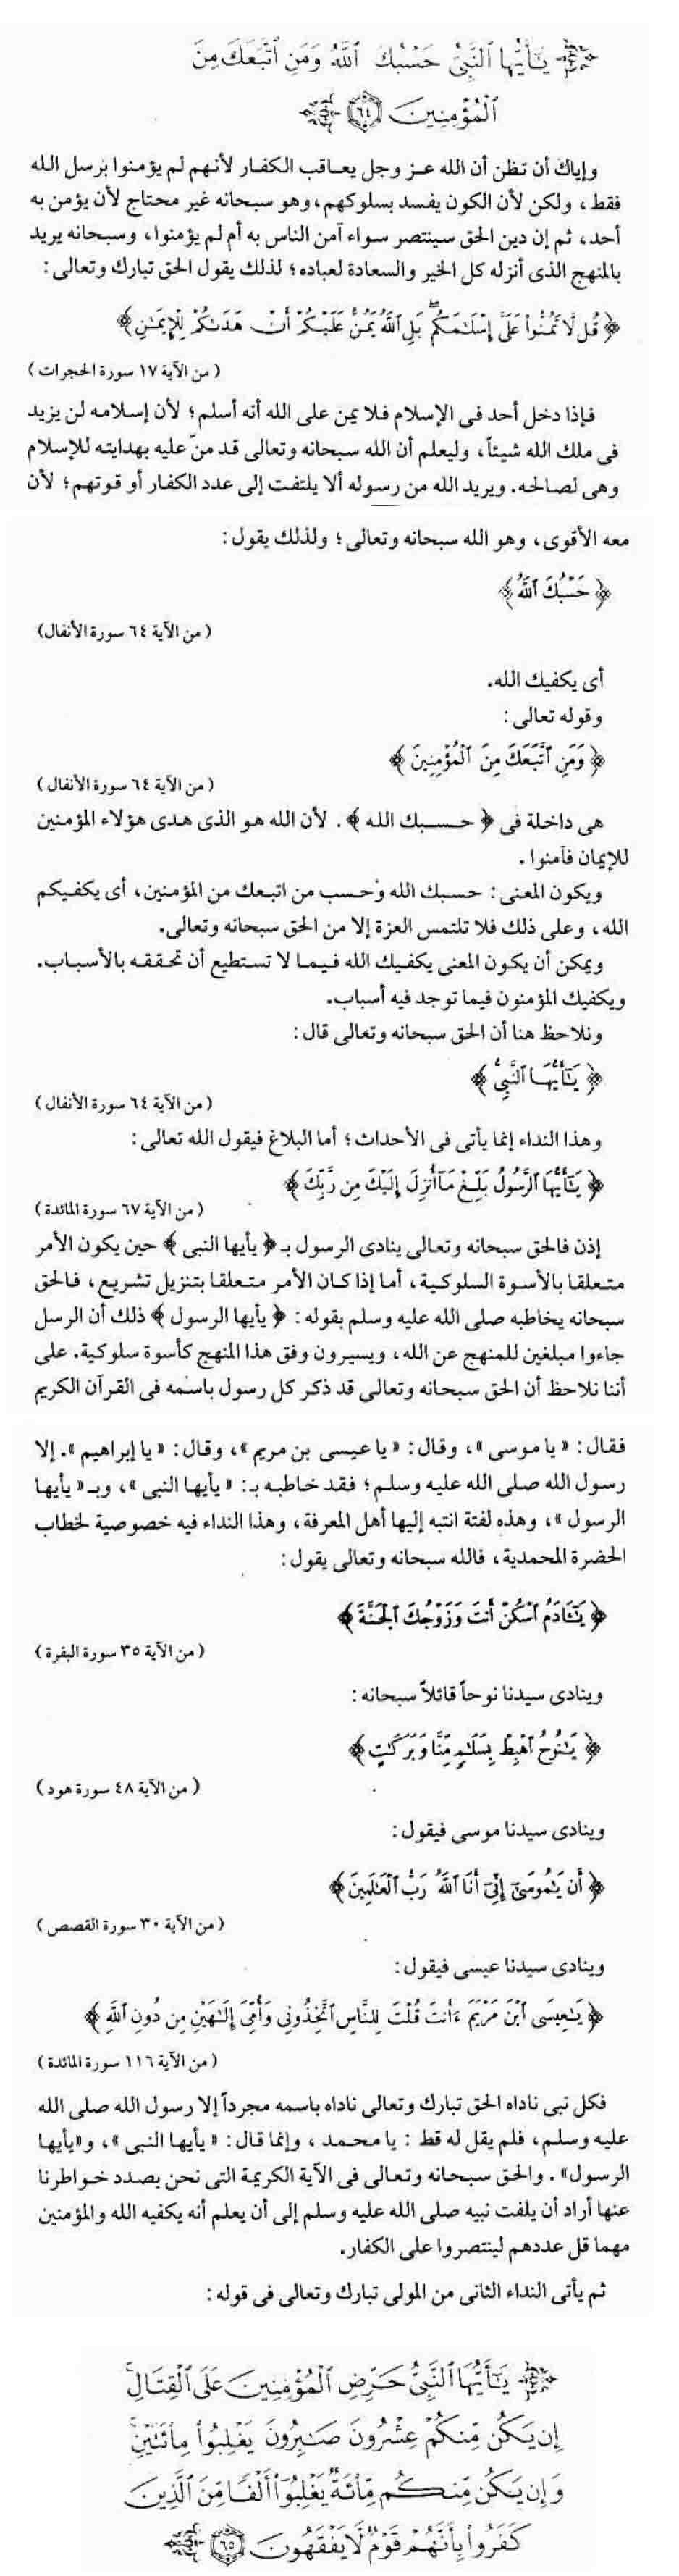 يَٰٓأَيُّهَا ٱلنَّبِىُّ حَسْبُكَ ٱللَّهُ وَمَنِ ٱتَّبَعَكَ مِنَ
ٱلْمُؤْمِنِينَ ٦٤
وإياك أن تظن أن الله عز وجل يعاقب الكفار لأنهم لم يؤمنوا برسل الله
فقط، ولكن لأن الكون يفسد بسلوكهم، وهو سبحانه غير محتاج لأن يؤمن به
أحد، ثم إن دين الحق سينتصر سواء آمن الناس به أم لم يؤمنوا، وسبحانه يريد
بالمنهج الذى أنزله كل الخير والسعادة لعباده؛ لذلك يقول الحق تبارك وتعالى:
﴿ قُل لَّا تَمُنُّوا۟ عَلَىَّ إِسْلَٰمَكُم ۖ بَلِ ٱللَّهُ يَمُنُّ عَلَيْكُمْ أَنْ هَدَىٰكُمْ لِلْإِيمَٰنِ ﴾
( من الآية ١٧ سورة الحجرات )
فإذا دخل أحد فى الإسلام فلا يمن على الله أنه أسلم؛ لأن إسلامه لن يزيد
فى ملك الله شيئاً، وليعلم أن الله سبحانه وتعالى قد منّ عليه بهدايته للإسلام
وهى لصالحه. ويريد الله من رسوله ألا يلتفت إلى عدد الكفار أو قوتهم؛ لأن
معه الأقوى، وهو الله سبحانه وتعالى؛ ولذلك يقول:
﴿ حَسْبُكَ ٱللَّهُ ﴾
( من الآية ٦٤ سورة الأنفال)
أى يكفيك الله.
وقوله تعالى:
﴿ وَمَنِ ٱتَّبَعَكَ مِنَ ٱلْمُؤْمِنِينَ ﴾
( من الآية ٦٤ سورة الأنفال )
هى داخلة فى ﴿ حسبك الله ﴾. لأن الله هو الذى هدى هؤلاء المؤمنين
للإيمان فآمنوا.
ويكون المعنى: حسبك الله وحسب من اتبعك من المؤمنين، أى يكفيكم
الله، وعلى ذلك فلا تلتمس العزة إلا من الحق سبحانه وتعالى.
ويمكن أن يكون المعنى يكفيك الله فيما لا تستطيع أن تحققه بالأسباب.
ويكفيك المؤمنون فيما توجد فيه أسباب.
ونلاحظ هنا أن الحق سبحانه وتعالى قال:
﴿ يَٰٓأَيُّهَا ٱلنَّبِىُّ ﴾
( من الآية ٦٤ سورة الأنفال )
وهذا النداء إنما يأتى فى الأحداث؛ أما البلاغ فيقول الله تعالى:
﴿ يَٰٓأَيُّهَا ٱلرَّسُولُ بَلِّغْ مَآ أُنزِلَ إِلَيْكَ مِن رَّبِّكَ ﴾
( من الآية ٦٧ سورة المائدة )
إذن فالحق سبحانه وتعالى ينادى الرسول بـ ﴿ يأيها النبى ﴾ حين يكون الأمر
متعلقا بالأسوة السلوكية، أما إذا كان الأمر متعلقا بتنزيل تشريع، فالحق
سبحانه يخاطبه صلى الله عليه وسلم بقوله: ﴿ يأيها الرسول ﴾ ذلك أن الرسل
جاءوا مبلغين للمنهج عن الله، ويسيرون وفق هذا المنهج كأسوة سلوكية. على
أننا نلاحظ أن الحق سبحانه وتعالى قد ذكر كل رسول باسمه فى القرآن الكريم
فقال: « يا موسى »، وقال: « يا عيسى بن مريم »، وقال: « يا إبراهيم ». إلا
رسول الله صلى الله عليه وسلم؛ فقد خاطبه بـ: « يأيها النبى »، وبـ « يأيها
الرسول »، وهذه لفتة انتبه إليها أهل المعرفة، وهذا النداء فيه خصوصية لخطاب
الحضرة المحمدية، فالله سبحانه وتعالى يقول:
﴿ يَٰٓـَٔادَمُ ٱسْكُنْ أَنتَ وَزَوْجُكَ ٱلْجَنَّةَ ﴾
( من الآية ٣٥ سورة البقرة )
وينادى سيدنا نوحاً قائلاً سبحانه:
﴿ يَٰنُوحُ ٱهْبِطْ بِسَلَٰمٍ مِّنَّا وَبَرَكَٰتٍ ﴾
( من الآية ٤٨ سورة هود )
وينادى سيدنا موسى فيقول:
﴿ أَن يَٰمُوسَىٰٓ إِنِّىٓ أَنَا ٱللَّهُ رَبُّ ٱلْعَٰلَمِينَ ﴾
( من الآية ٣٠ سورة القصص )
وينادى سيدنا عيسى فيقول:
﴿ يَٰعِيسَى ٱبْنَ مَرْيَمَ ءَأَنتَ قُلْتَ لِلنَّاسِ ٱتَّخِذُونِى وَأُمِّىَ إِلَٰهَيْنِ مِن دُونِ ٱللَّهِ ﴾
( من الآية ١١٦ سورة المائدة )
فكل نبى ناداه الحق تبارك وتعالى ناداه باسمه مجرداً إلا رسول الله صلى الله
عليه وسلم، فلم يقل له قط : يا محمد ، وإنما قال: « يأيها النبى »، و«يأيها
الرسول» . والحق سبحانه وتعالى فى الآية الكريمة التى نحن بصدد خواطرنا
عنها أراد أن يلفت نبيه صلى الله عليه وسلم إلى أن يعلم أنه يكفيه الله والمؤمنين
مهما قل عددهم لينتصروا على الكفار.
ثم يأتى النداء الثانى من المولى تبارك وتعالى فى قوله:
يَٰٓأَيُّهَا ٱلنَّبِىُّ حَرِّضِ ٱلْمُؤْمِنِينَ عَلَى ٱلْقِتَالِ ۚ
إِن يَكُن مِّنكُمْ عِشْرُونَ صَٰبِرُونَ يَغْلِبُوا۟ مِا۟ئَتَيْنِ ۚ
وَإِن يَكُن مِّنكُم مِّا۟ئَةٌ يَغْلِبُوٓا۟ أَلْفًا مِّنَ ٱلَّذِينَ
كَفَرُوا۟ بِأَنَّهُمْ قَوْمٌ لَّا يَفْقَهُونَ ٦٥